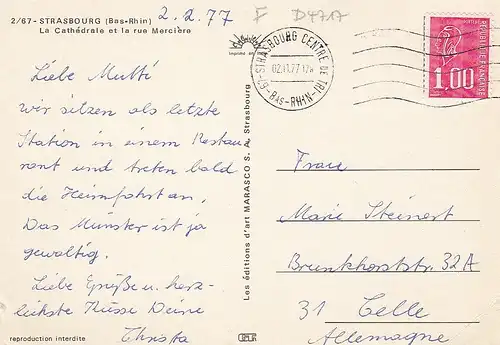 2/67 - STRASBOURG (Bas-Rhin)
La Cathédrale et la rue Mercière
2.2.77
F D47A
67-STRASBOURG CENTRE DE TRI
BAS-RHIN
REPUBLIQUE FRANCAISE
1,00
Liebe Mutti
wir sitzen als letzte
Station in einem Restau
rant und treten bald
die Heimfahrt an.
Das Münster ist ja
gewaltig.
Liebe Grüße u. herz-
lichste Küsse Deine
Christa
reproduction interdite
Les éditions d'art MARASCO S. A. Strasbourg
Frau
Marie Steinert
Brunkhorststr. 32A
31 Celle
Allemagne